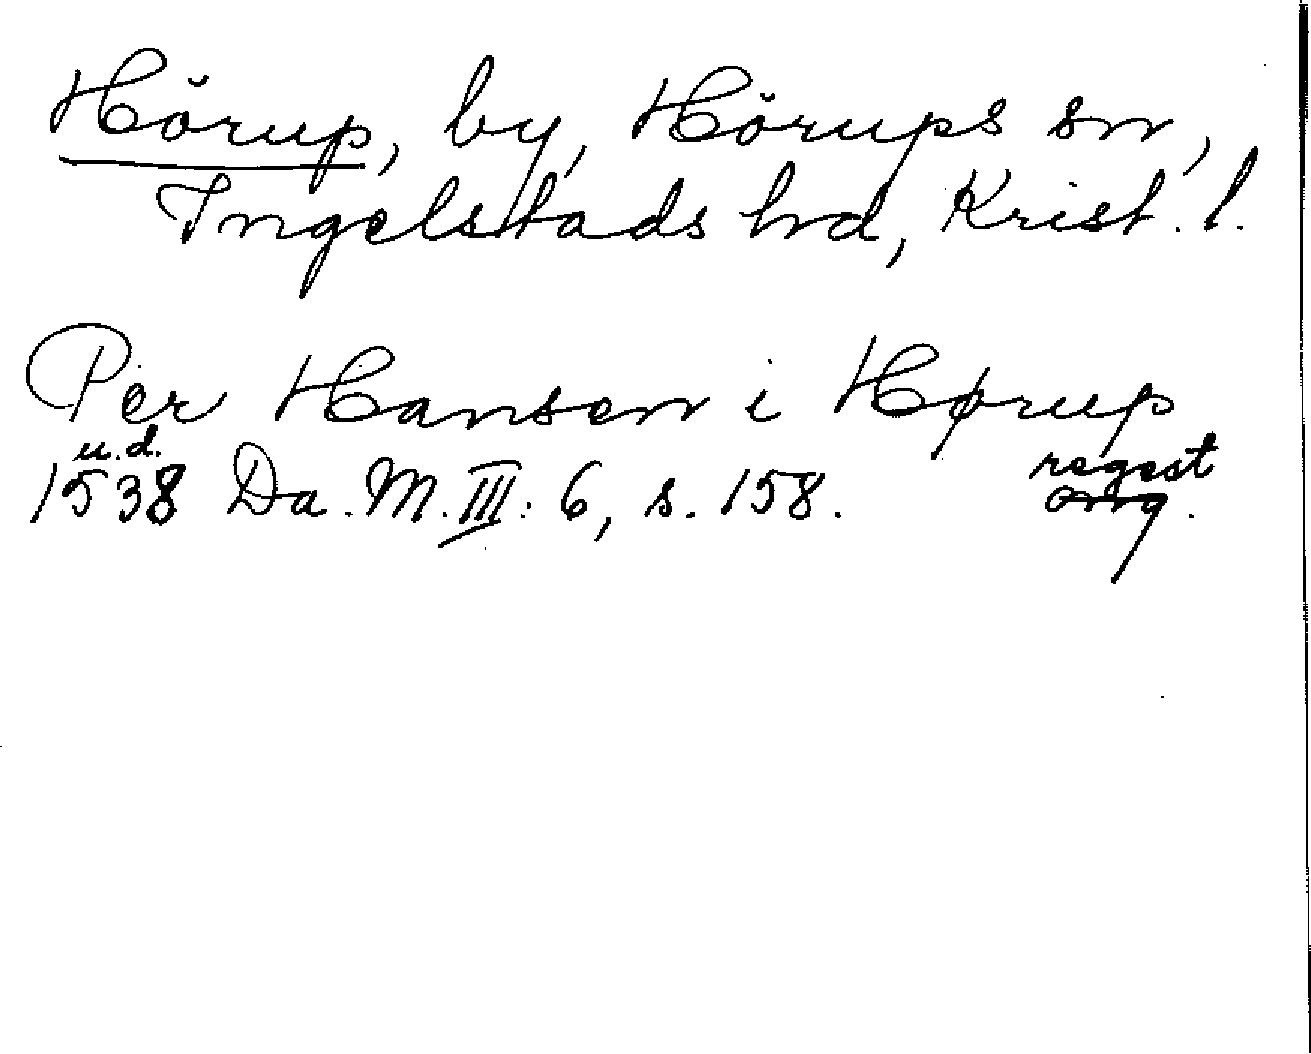 Hörup, by, Hörups sn,
Ingelstads hd, Krist. l.
Per Hansen i Hørup
u.d. regest
1538 Da. M. III: 6, s. 158. orig.